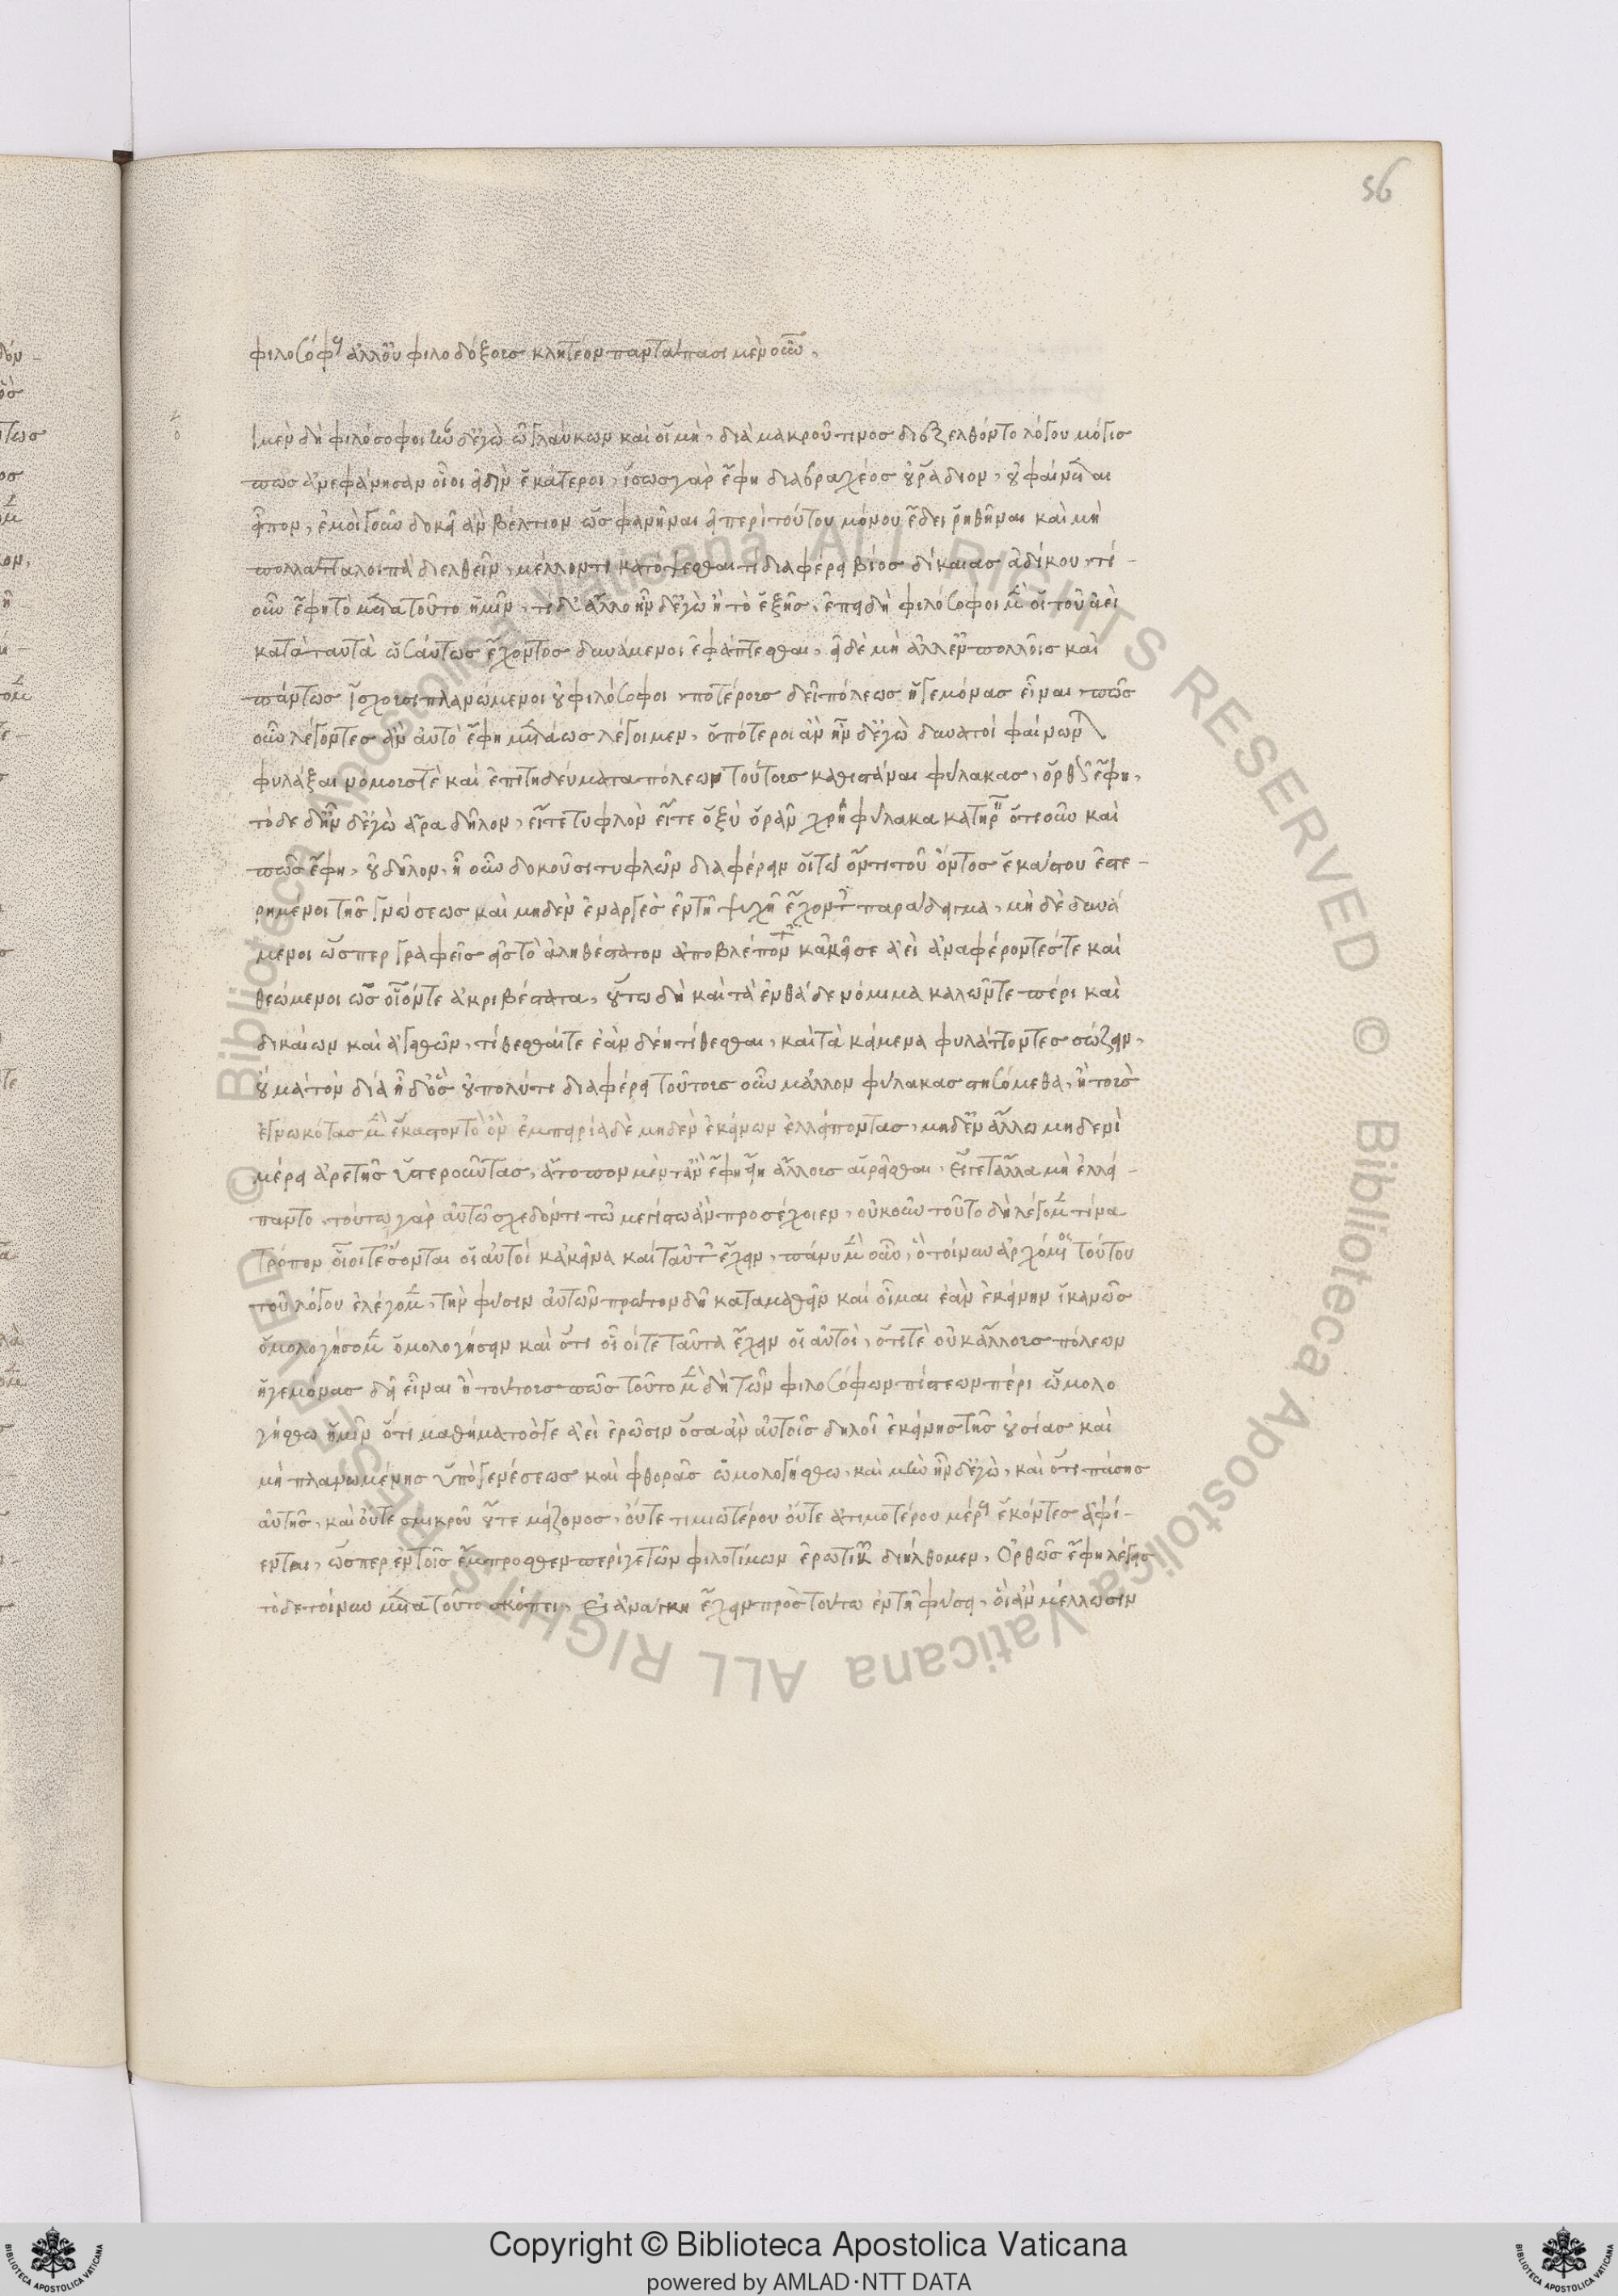 56
φιλοσόφους ἀλλ' οὐ φιλοδόξοις κλητέον παντάπασι μὲν οὖν,
ι μὲν δὴ φιλόσοφοι ἦν δ' ἐγὼ ὦ γλαύκων καὶ οἱ μὴ, διὰ μακροῦ τινος διεξελθόντο λόγου μόγις
πως ἀνεφάνησαν οἷοι εἰσὶν ἑκάτεροι, ἴσως γὰρ ἔφη διὰ βραχέος οὐ ῥάδιον, οὐ φαίνεται
εἶπον, ἐμοὶ γοῦν δοκεῖ ἂν βέλτιον ὡς φανῆναι εἰ περὶ τούτου μόνου ἔδει ῥηθῆναι καὶ μὴ
πολλὰ τὰ λοιπὰ διελθεῖν, μέλλοντι κατόψεσθαι τί διαφέρει βίος δίκαιας ἀδίκου, τί -
οὖν ἔφη τὸ μετὰ τοῦτο ἡμῖν, τί δ' ἄλλο ἦν δ' ἐγὼ ἢ τὸ ἑξῆς, ἐπειδὴ φιλόσοφοι μὲν οἱ τοῦ ἀεὶ
κατὰ ταυτὰ ὡσαύτως ἔχοντος δυνάμενοι ἐφάπτεσθαι, εἰ δὲ μὴ ἀλλ' ἐν πολλοῖς καὶ
πάντως ἴσχουσι πλανώμενοι οὐ φιλόσοφοι, ποτέροις δεῖ πόλεως ἡγεμόνας εἶναι, πῶς
οὖν λέγοντες ἂν αὐτὸ ἔφη μετρίως λέγοιμεν, ὁπότεροι ἂν ἦν δ' ἐγὼ δυνατοὶ φαίνωνται
φυλάξαι νόμοις τὲ καὶ ἐπιτηδεύματα πόλεων τούτοις καθιστάναι φύλακας, ὀρθῶς ἔφη,
τὸ δε δ' ἦν δ' ἐγὼ ἆρα δῆλον, εἴτε τυφλὸν εἴτε ὀξὺ ὁρᾶν χρὴ φύλακα κατηρεῖν ὅτε οὖν καὶ
πῶς ἔφη, οὐ δῆλον, ἢ οὖν δοκοῦσι τυφλῶν διαφέρειν οἱ τῶ ὄντι τοῦ ὄντος ἑκάστου ἐστε -
ρημένοι τῆς γνώσεως καὶ μηδὲν ἐναργὲς ἐν τῆ ψυχῆ ἔχοντες παράδειγμα, μὴ δὲ δυνά
μενοι ὥσπερ γραφεῖς εἰς τὸ ἀληθέστατον ἀποβλέποντες κἀκεῖσε ἀεὶ ἀναφέροντές τε καὶ
θεώμενοι ὡς οἷόν τε ἀκριβέστατα, οὕτω δὴ καὶ τὰ ἐνθάδε νόμιμα καλῶν τε πέρι καὶ
δικαίων καὶ ἀγαθῶν, τίθεσθαί τε ἐὰν δέη τίθεσθαι, καὶ τὰ κείμενα φυλάττοντες σώζειν,
οὐ μὰ τὸν δία ἦ δ' ὃς οὐ πολύ τι διαφέρει τούτοις οὖν μᾶλλον φύλακας στησόμεθα, ἢ τοὺς
ἐγνωκότας μὲν ἕκαστον τὸ ὂν ἐμπειρία δὲ μηδὲν ἐκείνων ἐλλείποντας, μηδ' ἐν ἄλλω μηδενὶ
μέρει ἀρετῆς ὑστεροῦντας, ἄτοπον μέντ' ἂν ἔφη εἴη ἄλλοις αἱρεῖσθαι, εἴγε τἄλλα μὴ ἐλλεί -
παντο, τούτω γὰρ αὐτῶ σχεδόν τι τῶ μεγίστω ἂν προσέχοιεν, οὐκοῦν τοῦτο δὴ λέγομεν τίνα
τρόπον οἷοί τ' ἔσονται οἱ αὐτοὶ κἀκεῖνα καὶ ταῦτα ἔχειν, πάνυ μὲν οὖν, ὃ τοίνυν ἀρχόμενοι τούτου
τοῦ λόγου ἐλέγομεν, τὴν φύσιν αὐτῶν πρῶτον δεῖ καταμαθεῖν καὶ οἶμαι ἐὰν ἐκείνην ἱκανῶς
ὁμολογήσομεν ὁμολογήσειν καὶ ὅτι οἷοί τε ταῦτα ἔχειν οἱ αὐτοὶ, ὅτι τὲ οὐκ ἄλλοις πόλεων
ἡγεμόνας δεῖ εἶναι ἢ τούτοις πῶς τοῦτο μὲν δὴ τῶν φιλοσόφων πίστεων πέρι ὡμολο
γήσθω ἡμῖν ὅτι μαθήματός γε ἀεὶ ἐρῶσιν ὅσα ἂν αὐτοῖς δηλοῖ ἐκείνης τῆς οὐσίας καὶ
μὴ πλανωμένης ὑπὸ γενέσεως καὶ φθορᾶς ὡμολογήσθω, καὶ μὴν ἦν δ' ἐγὼ, καὶ ὅτι πάσης
αὐτῆς, καὶ οὔτε σμικροῦ οὔτε μείζονος, οὔτε τιμιωτέρου οὔτε ἀτιμοτέρου μέρους ἑκόντες ἀφί -
ενται, ὥσπερ ἐν τοῖς ἔμπροσθεν περί γε τῶν φιλοτίμων ἐρωτικῶν διήλθομεν, Ὀρθῶς ἔφη λέγεις
τὸ δε τοίνυν μετὰ τοῦτο σκόπει, Εἰ ἀνάγκη ἔχειν πρὸς τούτω ἐν τῆ φύσει, οἳ ἂν μέλλωσιν
Copyright © Biblioteca Apostolica Vaticana
powered by AMLAD·NTT DATA